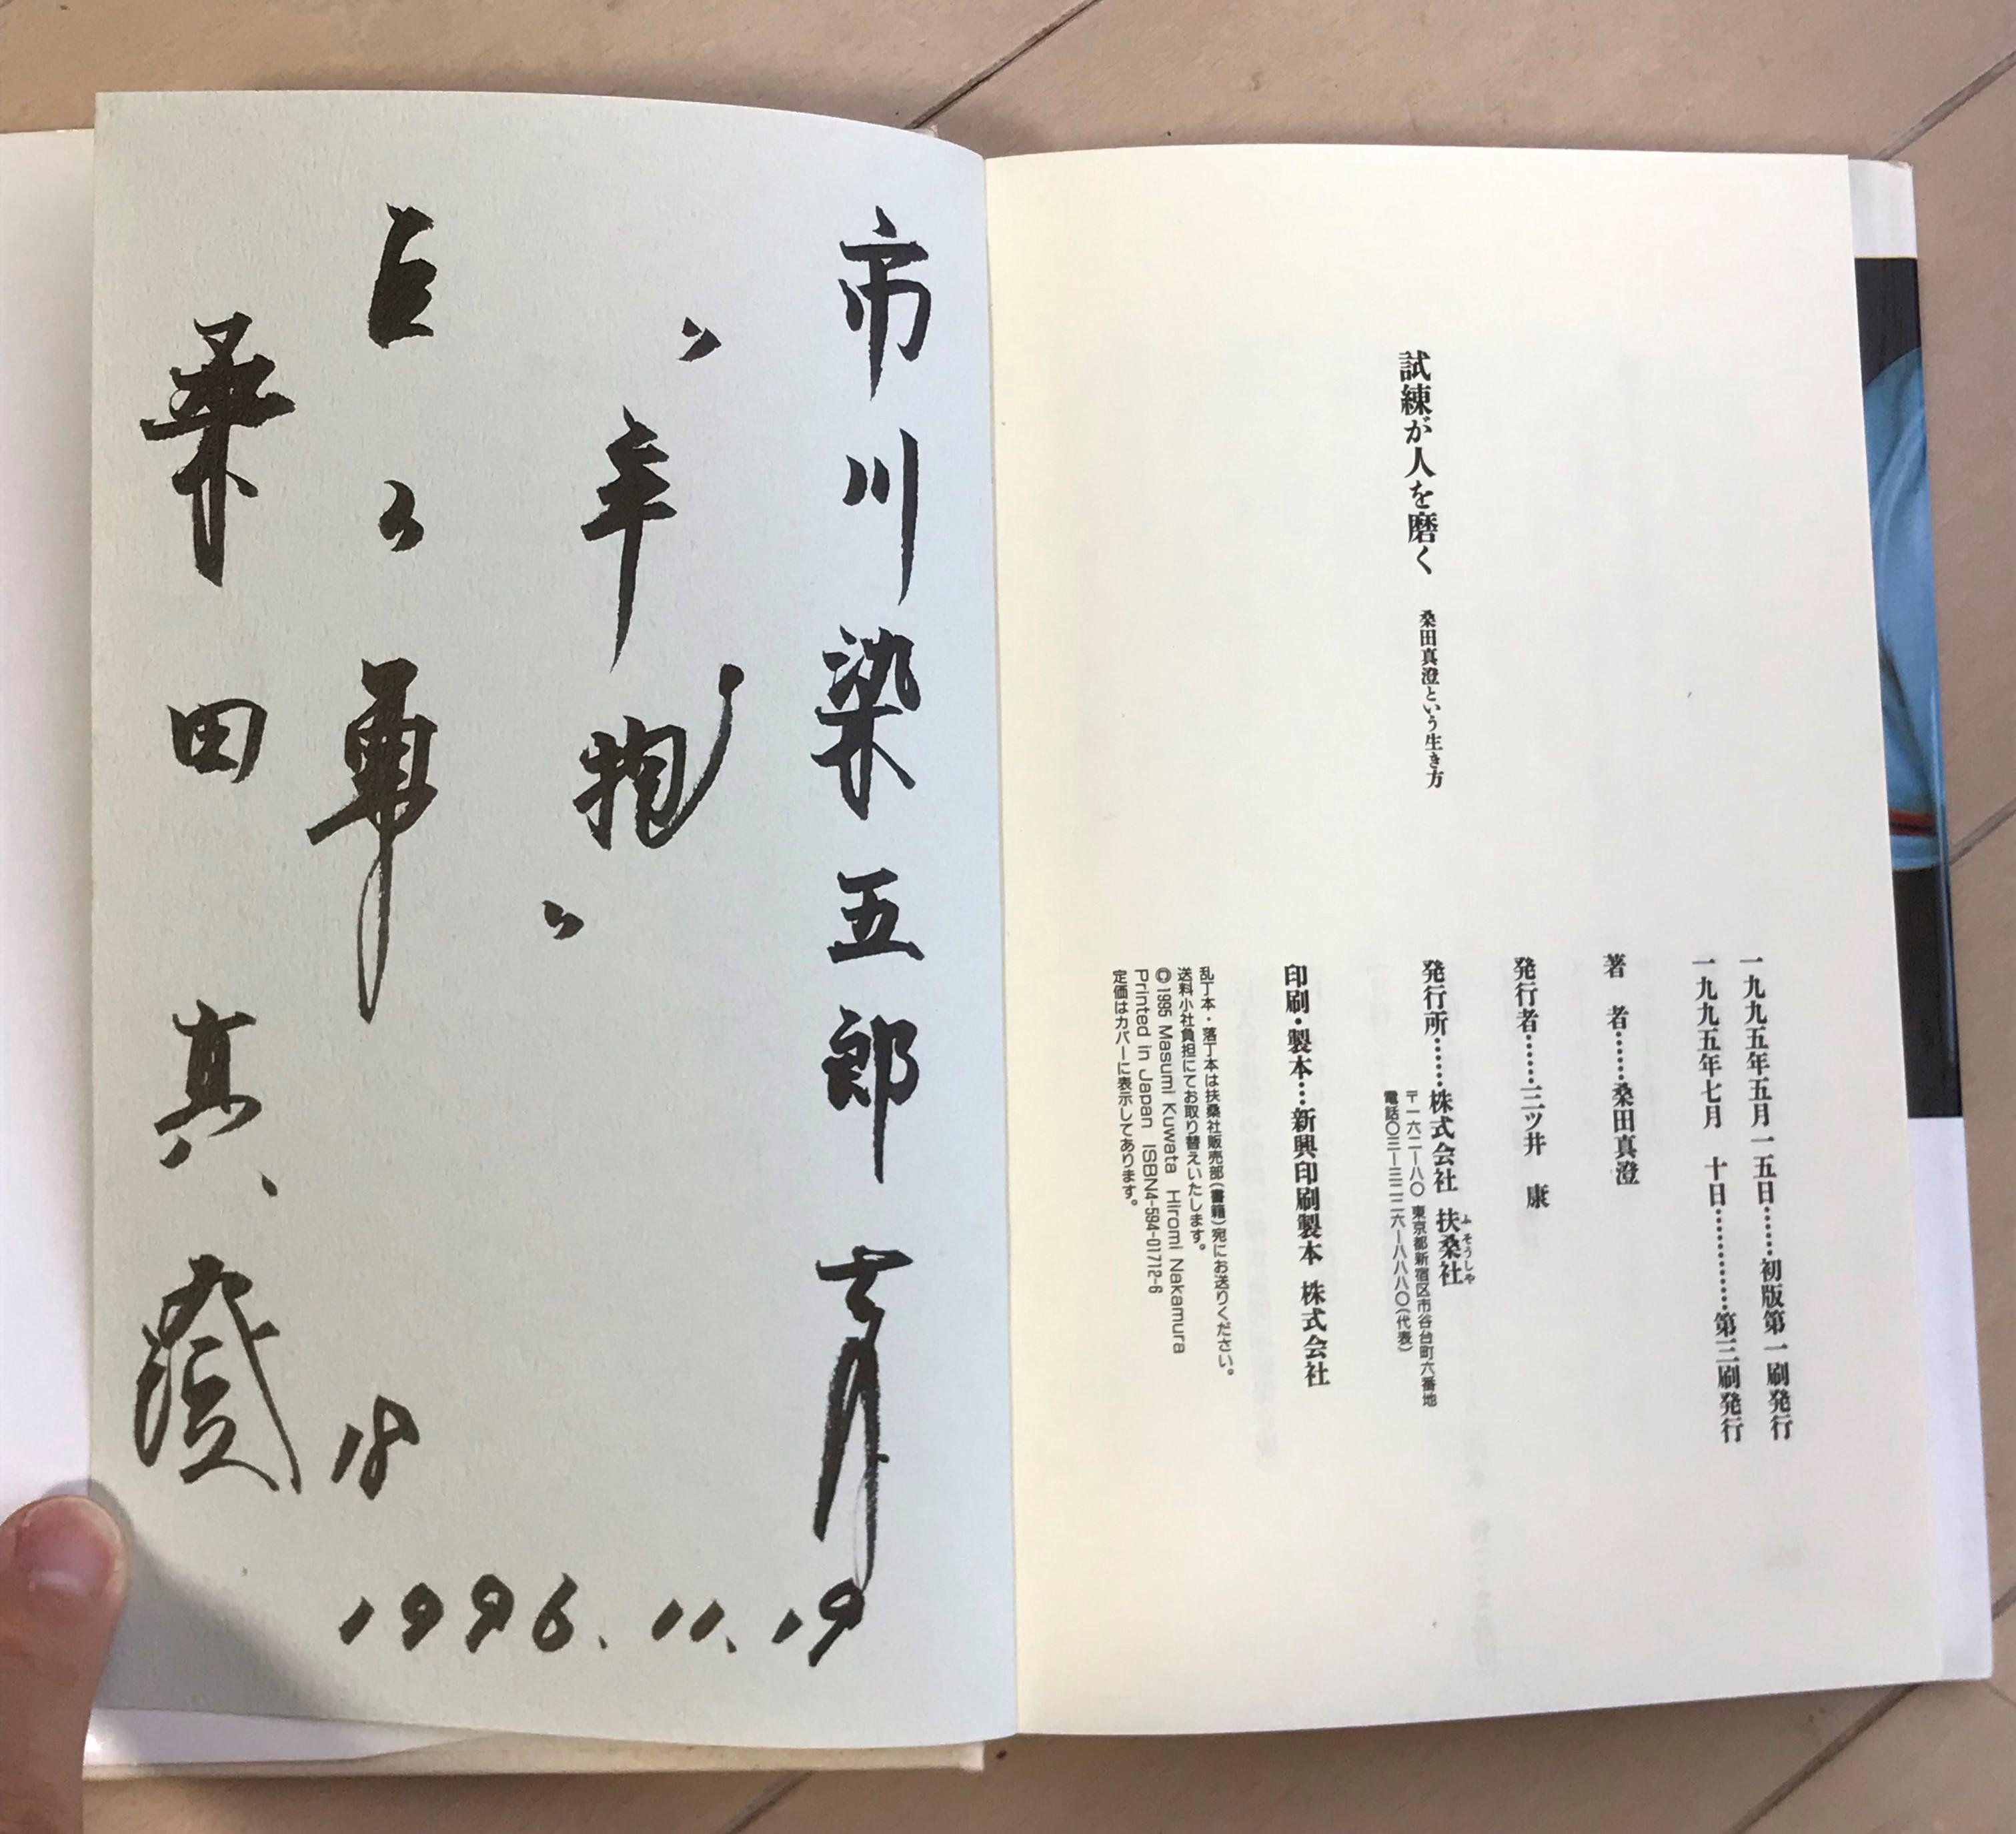 試練が人を磨く 桑田真澄という生き方
一九九五年五月一五日……初版第一刷発行
一九九五年七月 十日…………第三刷発行
著 者……桑田真澄
発行者……三ツ井 康
発行所……株式会社 扶桑社
ふそうしゃ
〒一六二-八〇 東京都新宿区市谷台町六番地
電話〇三-三二二六-八八八〇(代表)
印刷・製本…新興印刷製本 株式会社
乱丁本・落丁本は扶桑社販売部(書籍)宛にお送りください。
送料小社負担にてお取り替えいたします。
©1995 Masumi Kuwata Hiromi Nakamura
Printed in Japan ISBN4-594-01712-6
定価はカバーに表示してあります。
市川染五郎
〝辛抱〟
巨人軍
18
桑田真澄
1996.11.19